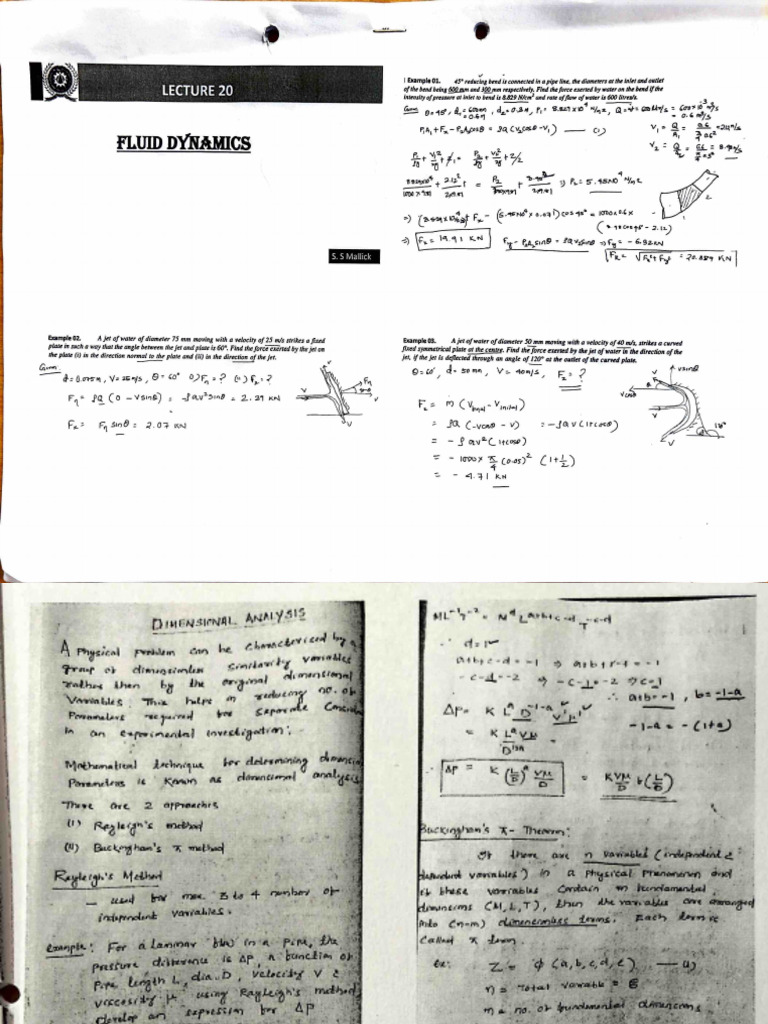 LECTURE 20
FLUID DYNAMICS
S. S Mallick
Example 01. 45° reducing bend is connected in a pipe line, the diameters at the inlet and outlet
of the bend being 600 mm and 300 mm respectively. Find the force exerted by water on the bend if the
intensity of pressure at inlet to bend is 8.829 N/cm² and rate of flow of water is 600 litres/s.
Given θ = 45°, d₁ = 600mm, d₂ = 0.3m, P₁ = 8.829×10⁴ N/m²,
= 0.6m
= 0.6 m³/s
P₁A₁ + Fₓ - P₂A₂cosθ = ρQ (V₂cosθ - V₁) — (1)
⇒ P₂ = 5.45×10⁴ N/m²
⇒ Fₓ = 19.91 KN
Fy = -6.32KN
Example 02. A jet of water of diameter 75 mm moving with a velocity of 25 m/s strikes a fixed
plate in such a way that the angle between the jet and plate is 60°. Find the force exerted by the jet on
the plate (i) in the direction normal to the plate and (ii) in the direction of the jet.
Given
d = 0.075m, V = 25m/s, θ = 60° i) Fη = ? ii) Fₓ = ?
Fη = ρQ (0 - Vsinθ) = ρav²sinθ = 2.39 KN
Fₓ = Fη sinθ = 2.07 KN
Example 03. A jet of water of diameter 50 mm moving with a velocity of 40 m/s, strikes a curved
fixed symmetrical plate at the centre. Find the force exerted by the jet of water in the direction of the
jet, if the jet is deflected through an angle of 120° at the outlet of the curved plate.
θ = 60°, d = 50mm, V = 40m/s, Fₓ = ?
Fₓ = ṁ (Vfinal - Vinitial)
= ρQ (-Vcosθ - V) = -ρQV(1+cosθ)
= -ρav² (1+cosθ)
= -1000× π/4 (0.05)² (1+1/2)
= -4.71 KN
DIMENSIONAL ANALYSIS
A Physical problem can be characterised by a
group of dimensionless similarity variables
rather then by the original dimensional
Variables. This helps in reducing no. of
Parameters required for separate
in an experimental investigation.
Mathematical technique for determining
Parameters is known as dimensional analysis
There are 2 approaches
(i) Rayleigh's method
(ii) Buckingham's π method
Rayleigh's Method
— used for max. 3 to 4 number of
independent variables.
example: For a laminar flow in a pipe, the
pressure difference is ΔP, a function of
Pipe length L, dia. D, velocity V &
viscosity μ using Rayleigh's method
develop an expression for ΔP
ML⁻¹T⁻² = Mᵈ Lᵃ⁺ᵇ⁺ᶜ⁻ᵈ T⁻ᶜ⁻ᵈ
∴ d=1
-c-d=-2 ⇒ -c-1=-2 ⇒ c=1
∴ a+b=-1, b=-1-a
ΔP = K Lᵃ D⁻¹⁻ᵃ V¹μ¹
-1-a = -(1+a)
= K LᵃVμ / D¹⁺ᵃ
∴ ΔP = K (L/D)ᵃ Vμ/D = KVμ/D (L/D)
Buckingham's π- Theorem:
If there are n variables (independent &
dependent variables) in a physical phenomenon and
if these variables contain m fundamental
dimensions (M, L, T), then the variables are arranged
into (n-m) dimensionless terms. Each term is
called π term.
ex: Z = φ (a, b, c, d, e) — (1)
n = Total variable = 6
m = no. of fundamental dimensions